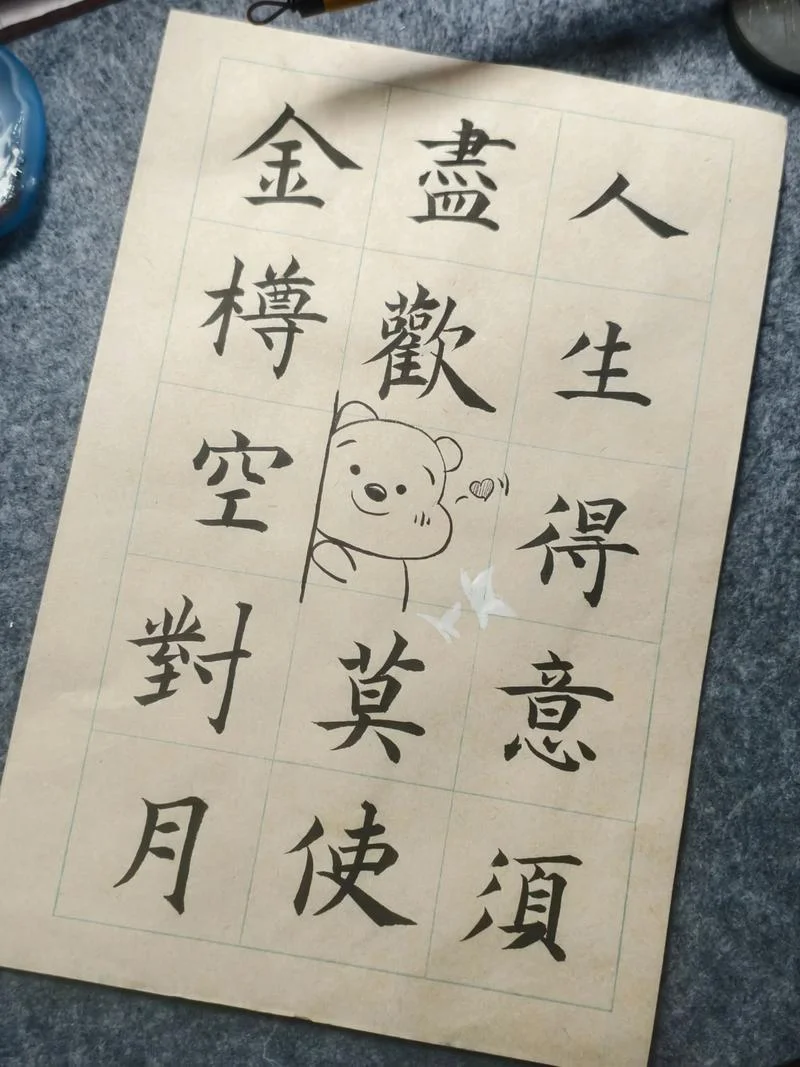 人生得意須
盡歡莫使
金樽空對月